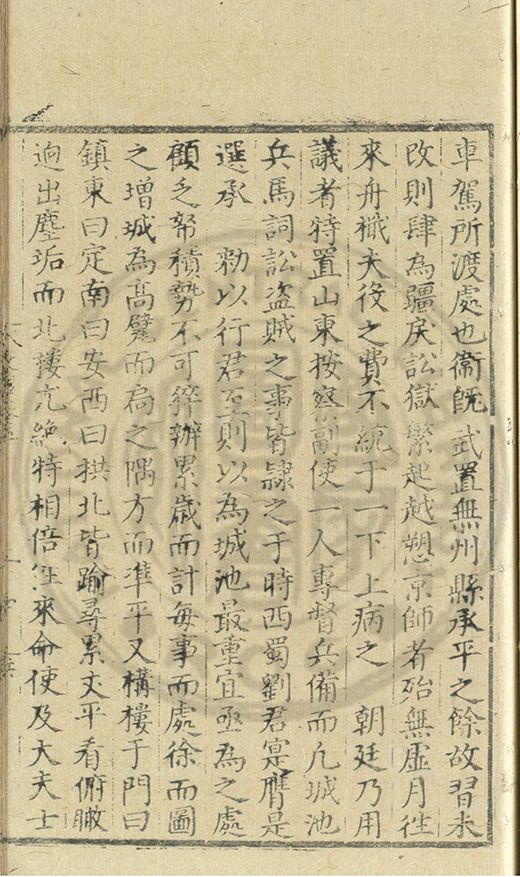 車駕所渡處也衛旣 武置無州縣承平之餘故習未
改則肆為彊戾訟獄繁起越愬京師者殆無虛月徃
來舟檝夫役之費不統于一下上病之 朝廷乃用
議者特置山東按察副使一人專督兵備而凡城池
兵馬詞訟盜賊之事皆隸之于時西蜀劉君寔膺是
選承 勑以行君至則以為城池最重宜亟為之處
顧乏帑積勢不可猝辦累歲而計每事而處徐而圖
之增城為高甓而扃之隅方而準平又構樓于門曰
鎮東曰定南曰安西曰拱北皆踰尋累丈平看俯瞰
逈出塵坊而北樓尤絶特相倍徃來命使及大夫士